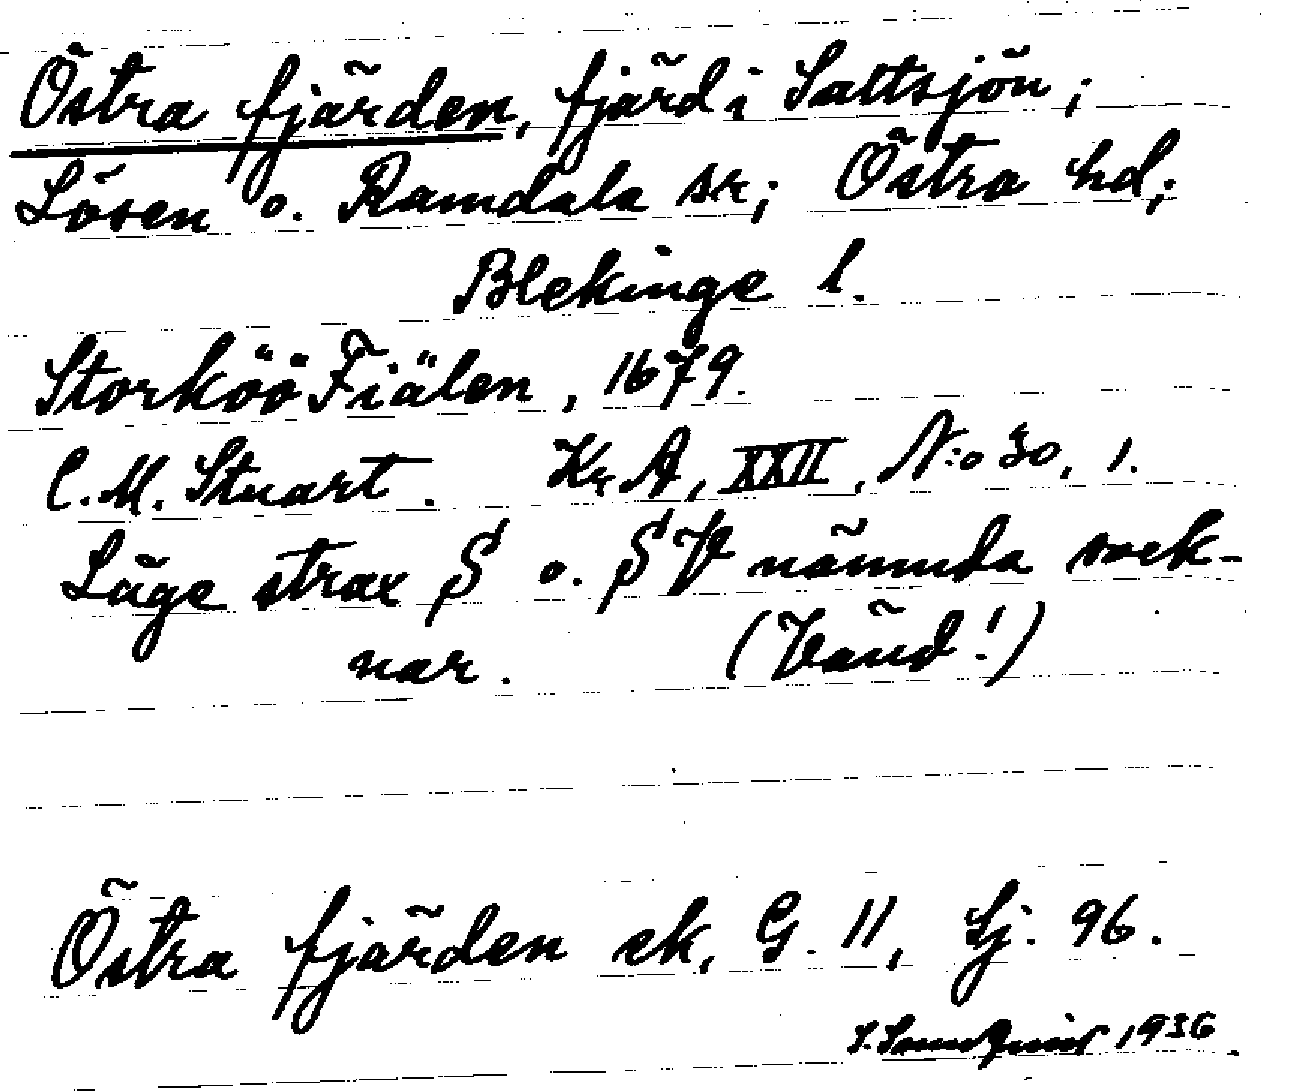 Östra fjärden, fjärd i Saltsjön;
Lösen o. Ramdala sk; Östra hd;
Blekinge l.
StorKöö Fiälen, 1679.
C. M. Stuart. KrA, XXII, N:o 30, 1.
Läge strax S o. SV nämnda sock-
nar. (Vänd!)
Östra fjärden ek, G. 11, Sj. 96.
1936